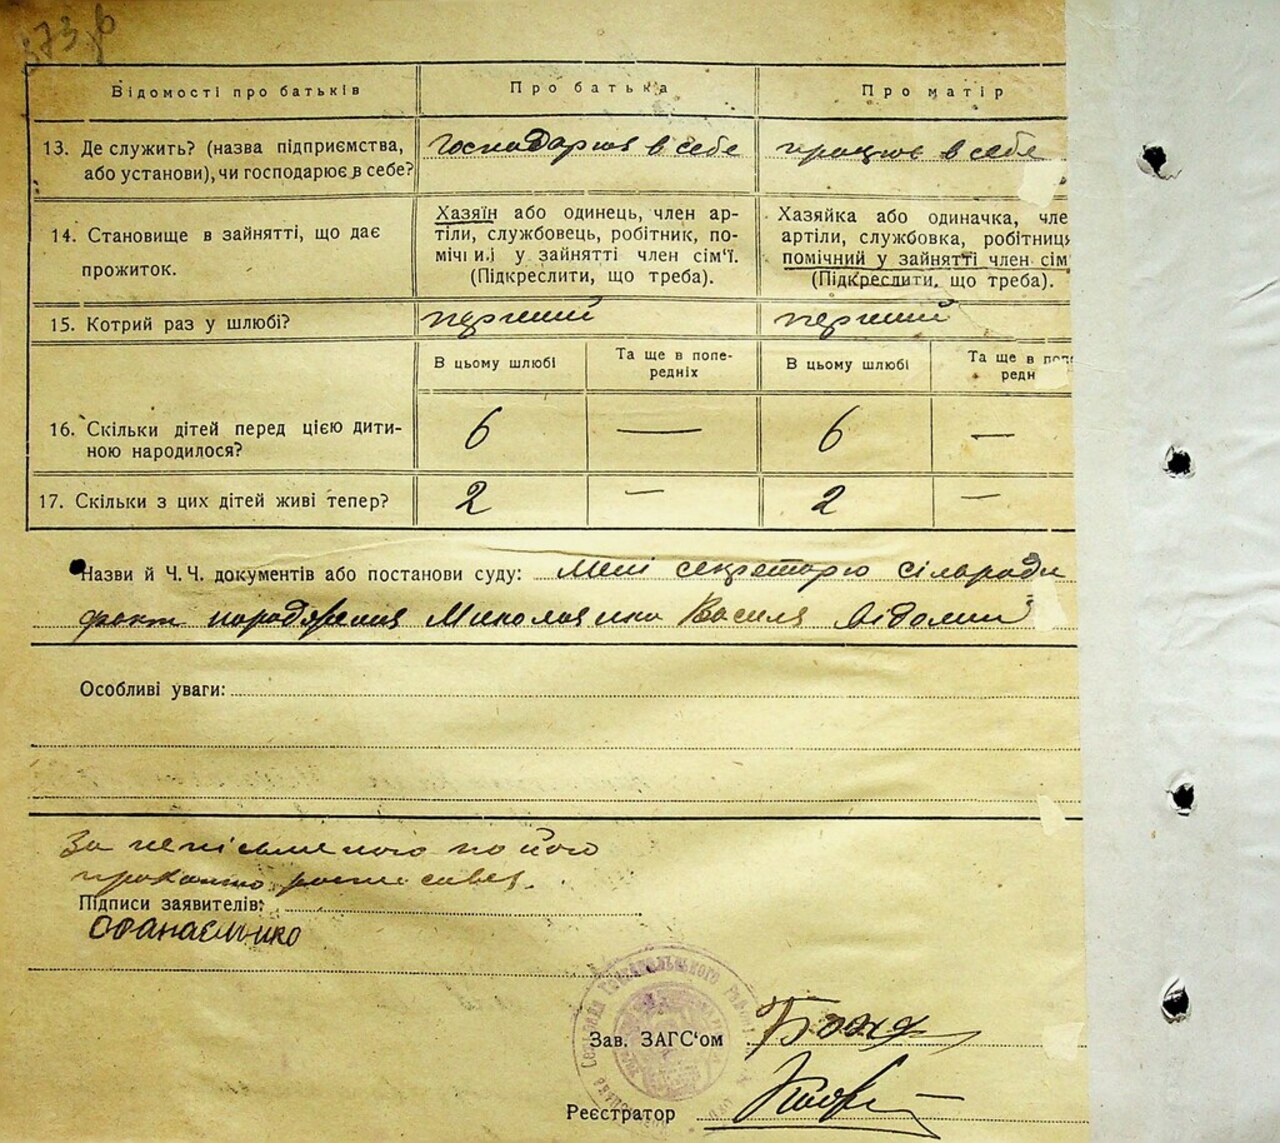 Відомості про батьків
Про батька
Про матір
13. Де служить? (назва підприємства, або установи), чи господарює в себе?
господарює в себе
працює в себе
14. Становище в зайнятті, що дає прожиток.
Хазяїн або одинець, член ар-
тіли, службовець, робітник, по-
мічний у зайнятті член сім'ї.
(Підкреслити, що треба).
Хазяйка або одиначка, чле
артіли, службовка, робітниця
помічний у зайнятті член сім'
(Підкреслити, що треба).
15. Котрий раз у шлюбі?
перший
перший
В цьому шлюбі
Та ще в попе-
редніх
В цьому шлюбі
Та ще в попе
редн
16. Скільки дітей перед цією дити-
ною народилося?
6 —
6 —
17. Скільки з цих дітей живі тепер?
2 —
2 —
Назви й Ч. Ч. документів або постанови суду: Мені секретарю сільради
факт народження Миколаенка Василя відомий
Особливі уваги:
За неписьменого по його
проханню росписався
Підписи заявителів:
Опанасенко
Зав. ЗАГС'ом
Реєстратор